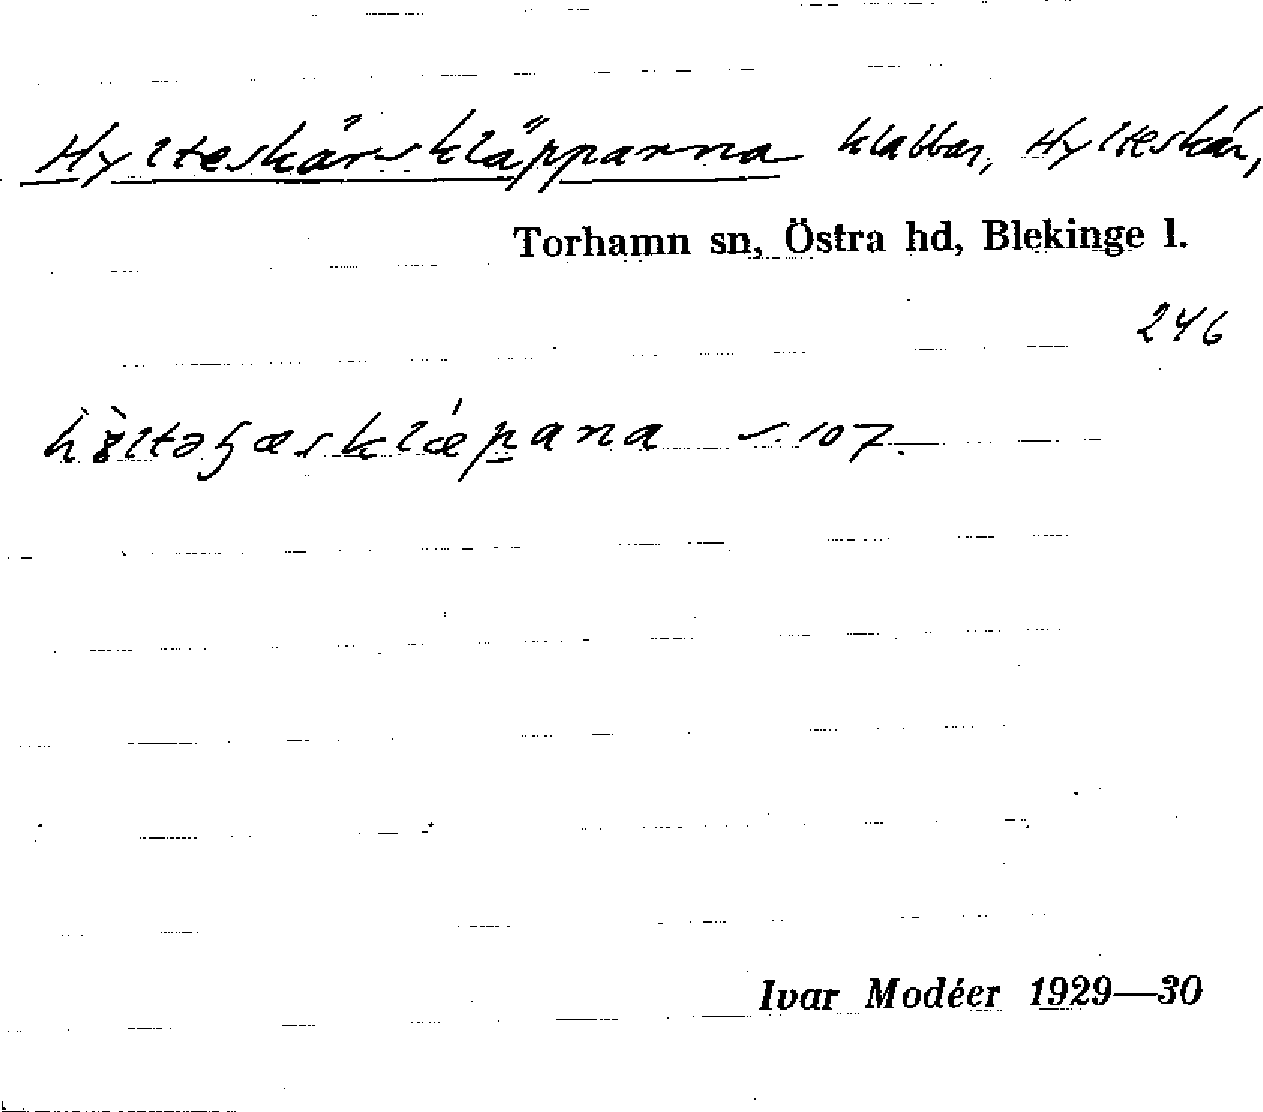 Hylteskärskläpparna klabbar, Hylteskär,
Torhamn sn, Östra hd, Blekinge l.
246
s. 107.
Ivar Modéer 1929—30